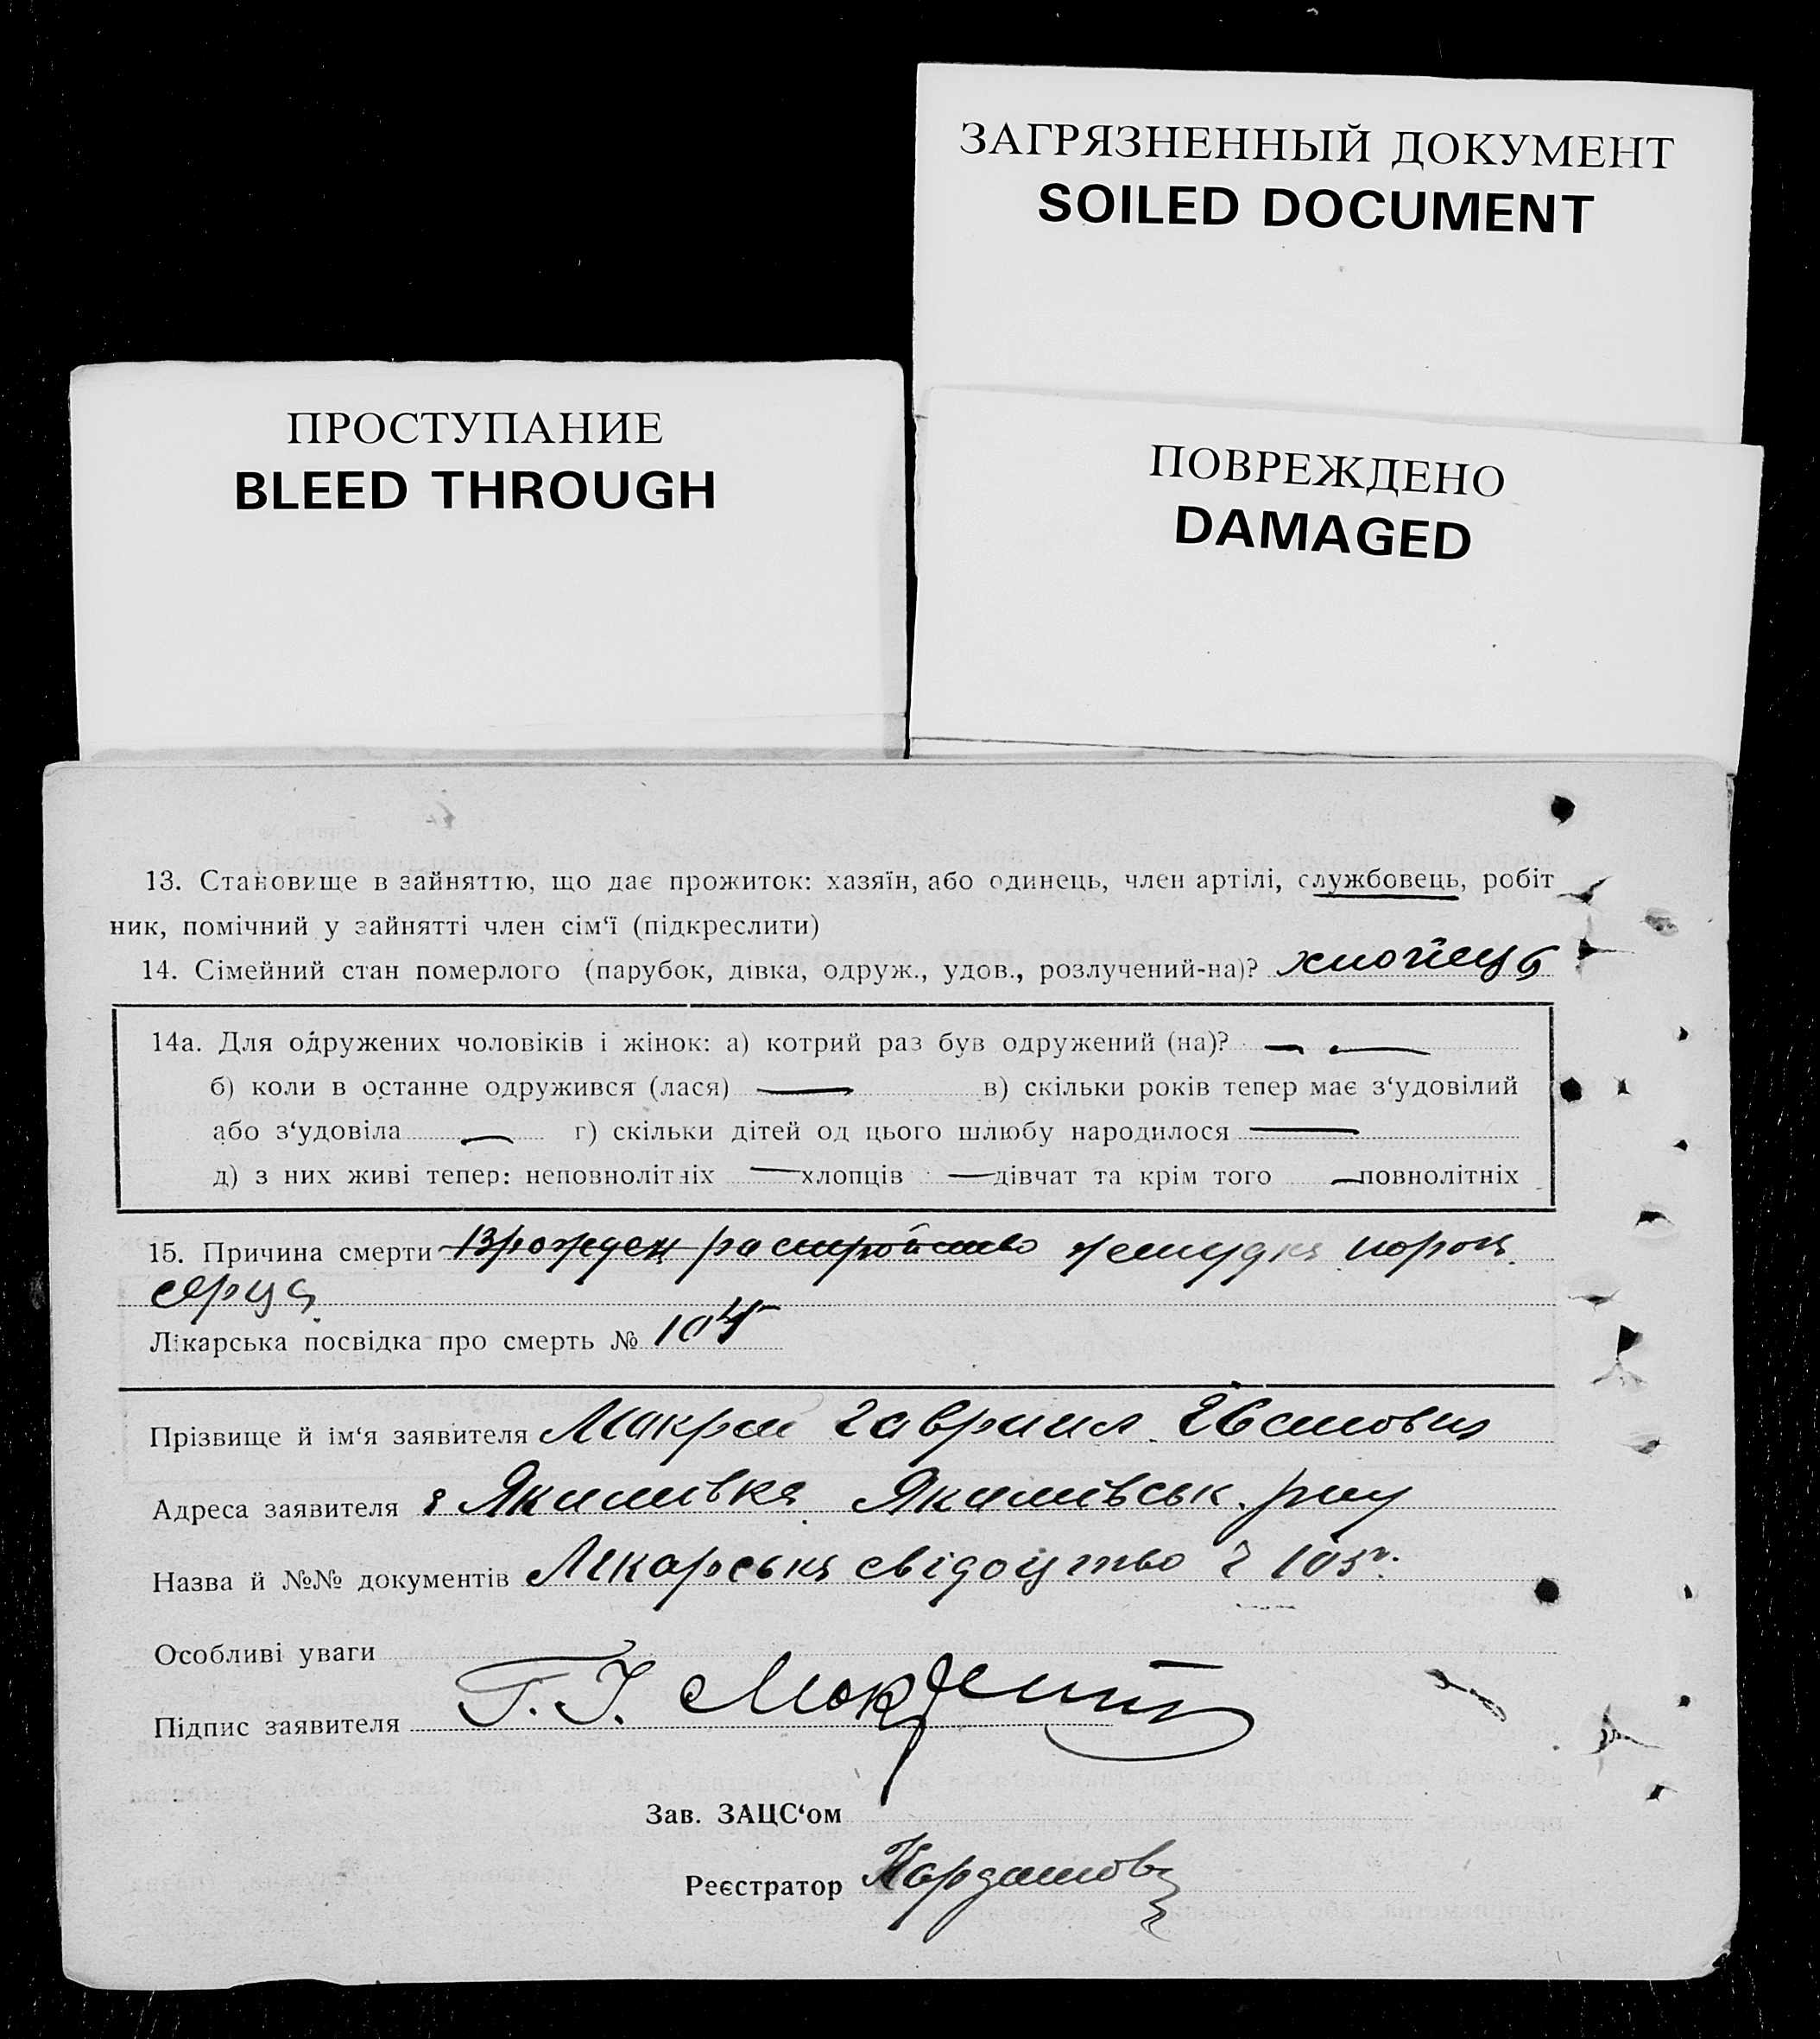 ЗАГРЯЗНЕННЫЙ ДОКУМЕНТ
SOILED DOCUMENT
ПРОСТУПАНИЕ
BLEED THROUGH
ПОВРЕЖДЕНО
DAMAGED
13. Становище в зайняттю, що дає прожиток: хазяїн, або одинець, член артілі, службовець, робіт
ник, помічний у зайнятті член сім‘ї (підкреслити)
14. Сімейний стан померлого (парубок, дівка, одруж., удов., розлучений-на)? хлопець
14а. Для одружених чоловіків і жінок: а) котрий раз був одружений (на)? — —
б) коли в останне одружився (лася) — в) скільки років тепер має з‘удовілий
або з‘удовіла — г) скільки дітей од цього шлюбу народилося —
д) з них живі тепер: неповнолітніх — хлопців — дівчат та крім того — повнолітніх
15. Причина смерти Врожден расстройство желудка порок
серця
Лікарська посвідка про смерть № 105
Прізвище й ім‘я заявителя Гавриил
Адреса заявителя Якимівка Якимівськ. рну
Назва й №№ документів Лікарська свідоцтво 105
Особливі уваги
Підпис заявителя Г. І.
Зав. ЗАЦС‘ом
Реєстратор